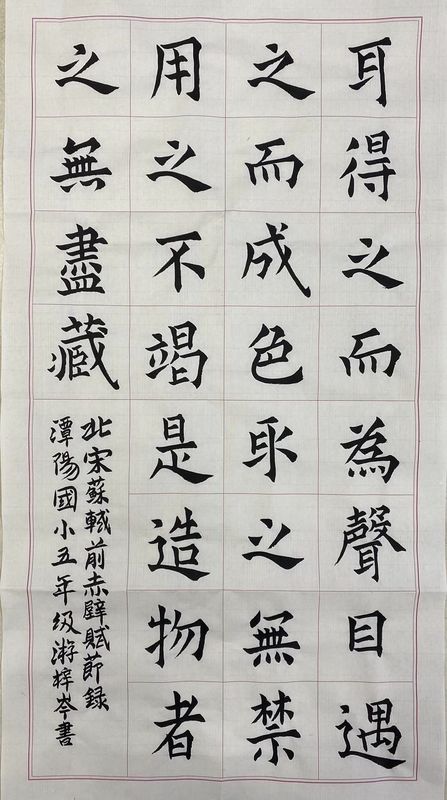 耳得之而為聲目遇
之而成色取之無禁
用之不竭是造物者
之無盡藏
北宋蘇軾前赤壁賦節錄
潭陽國小五年級游梓岑書